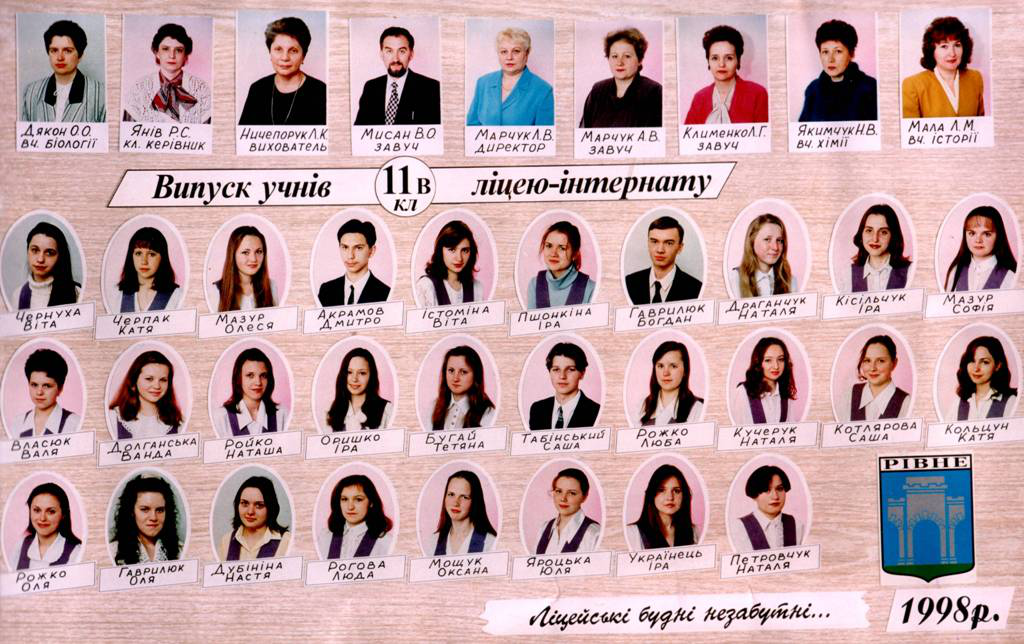 Дякон О.О.
вч. біології
Янів Р.С.
кл. керівник
Ничепорук Л.К.
вихователь
Мисан В.О
завуч
Марчук Л.В.
директор
Марчук А.В.
завуч
Клименко Л.Г.
завуч
Якимчук Н.В.
вч. хімії
Мала Л.М.
вч. історії
Випуск учнів 11в ліцею-інтернату
кл
Чернуха
Віта
Черпак
Катя
Мазур
Олеся
Акрамов
Дмитро
Істоміна
Віта
Пшонкіна
Іра
Гаврилюк
Богдан
Драганчук
Наталя
Кісільчук
Іра
Мазур
Софія
Власюк
Валя
Долганська
Ванда
Ройко
Наташа
Оришко
Іра
Бугай
Тетяна
Табінський
Саша
Рожко
Люба
Кучерук
Наталя
Котлярова
Саша
Кольцун
Катя
Рожко
Оля
Гаврилюк
Оля
Дубініна
Настя
Рогова
Люда
Мощук
Оксана
Яроцька
Юля
Українець
Іра
Петровчук
Наталя
РІВНЕ
Ліцейські будні незабутні...
1998р.